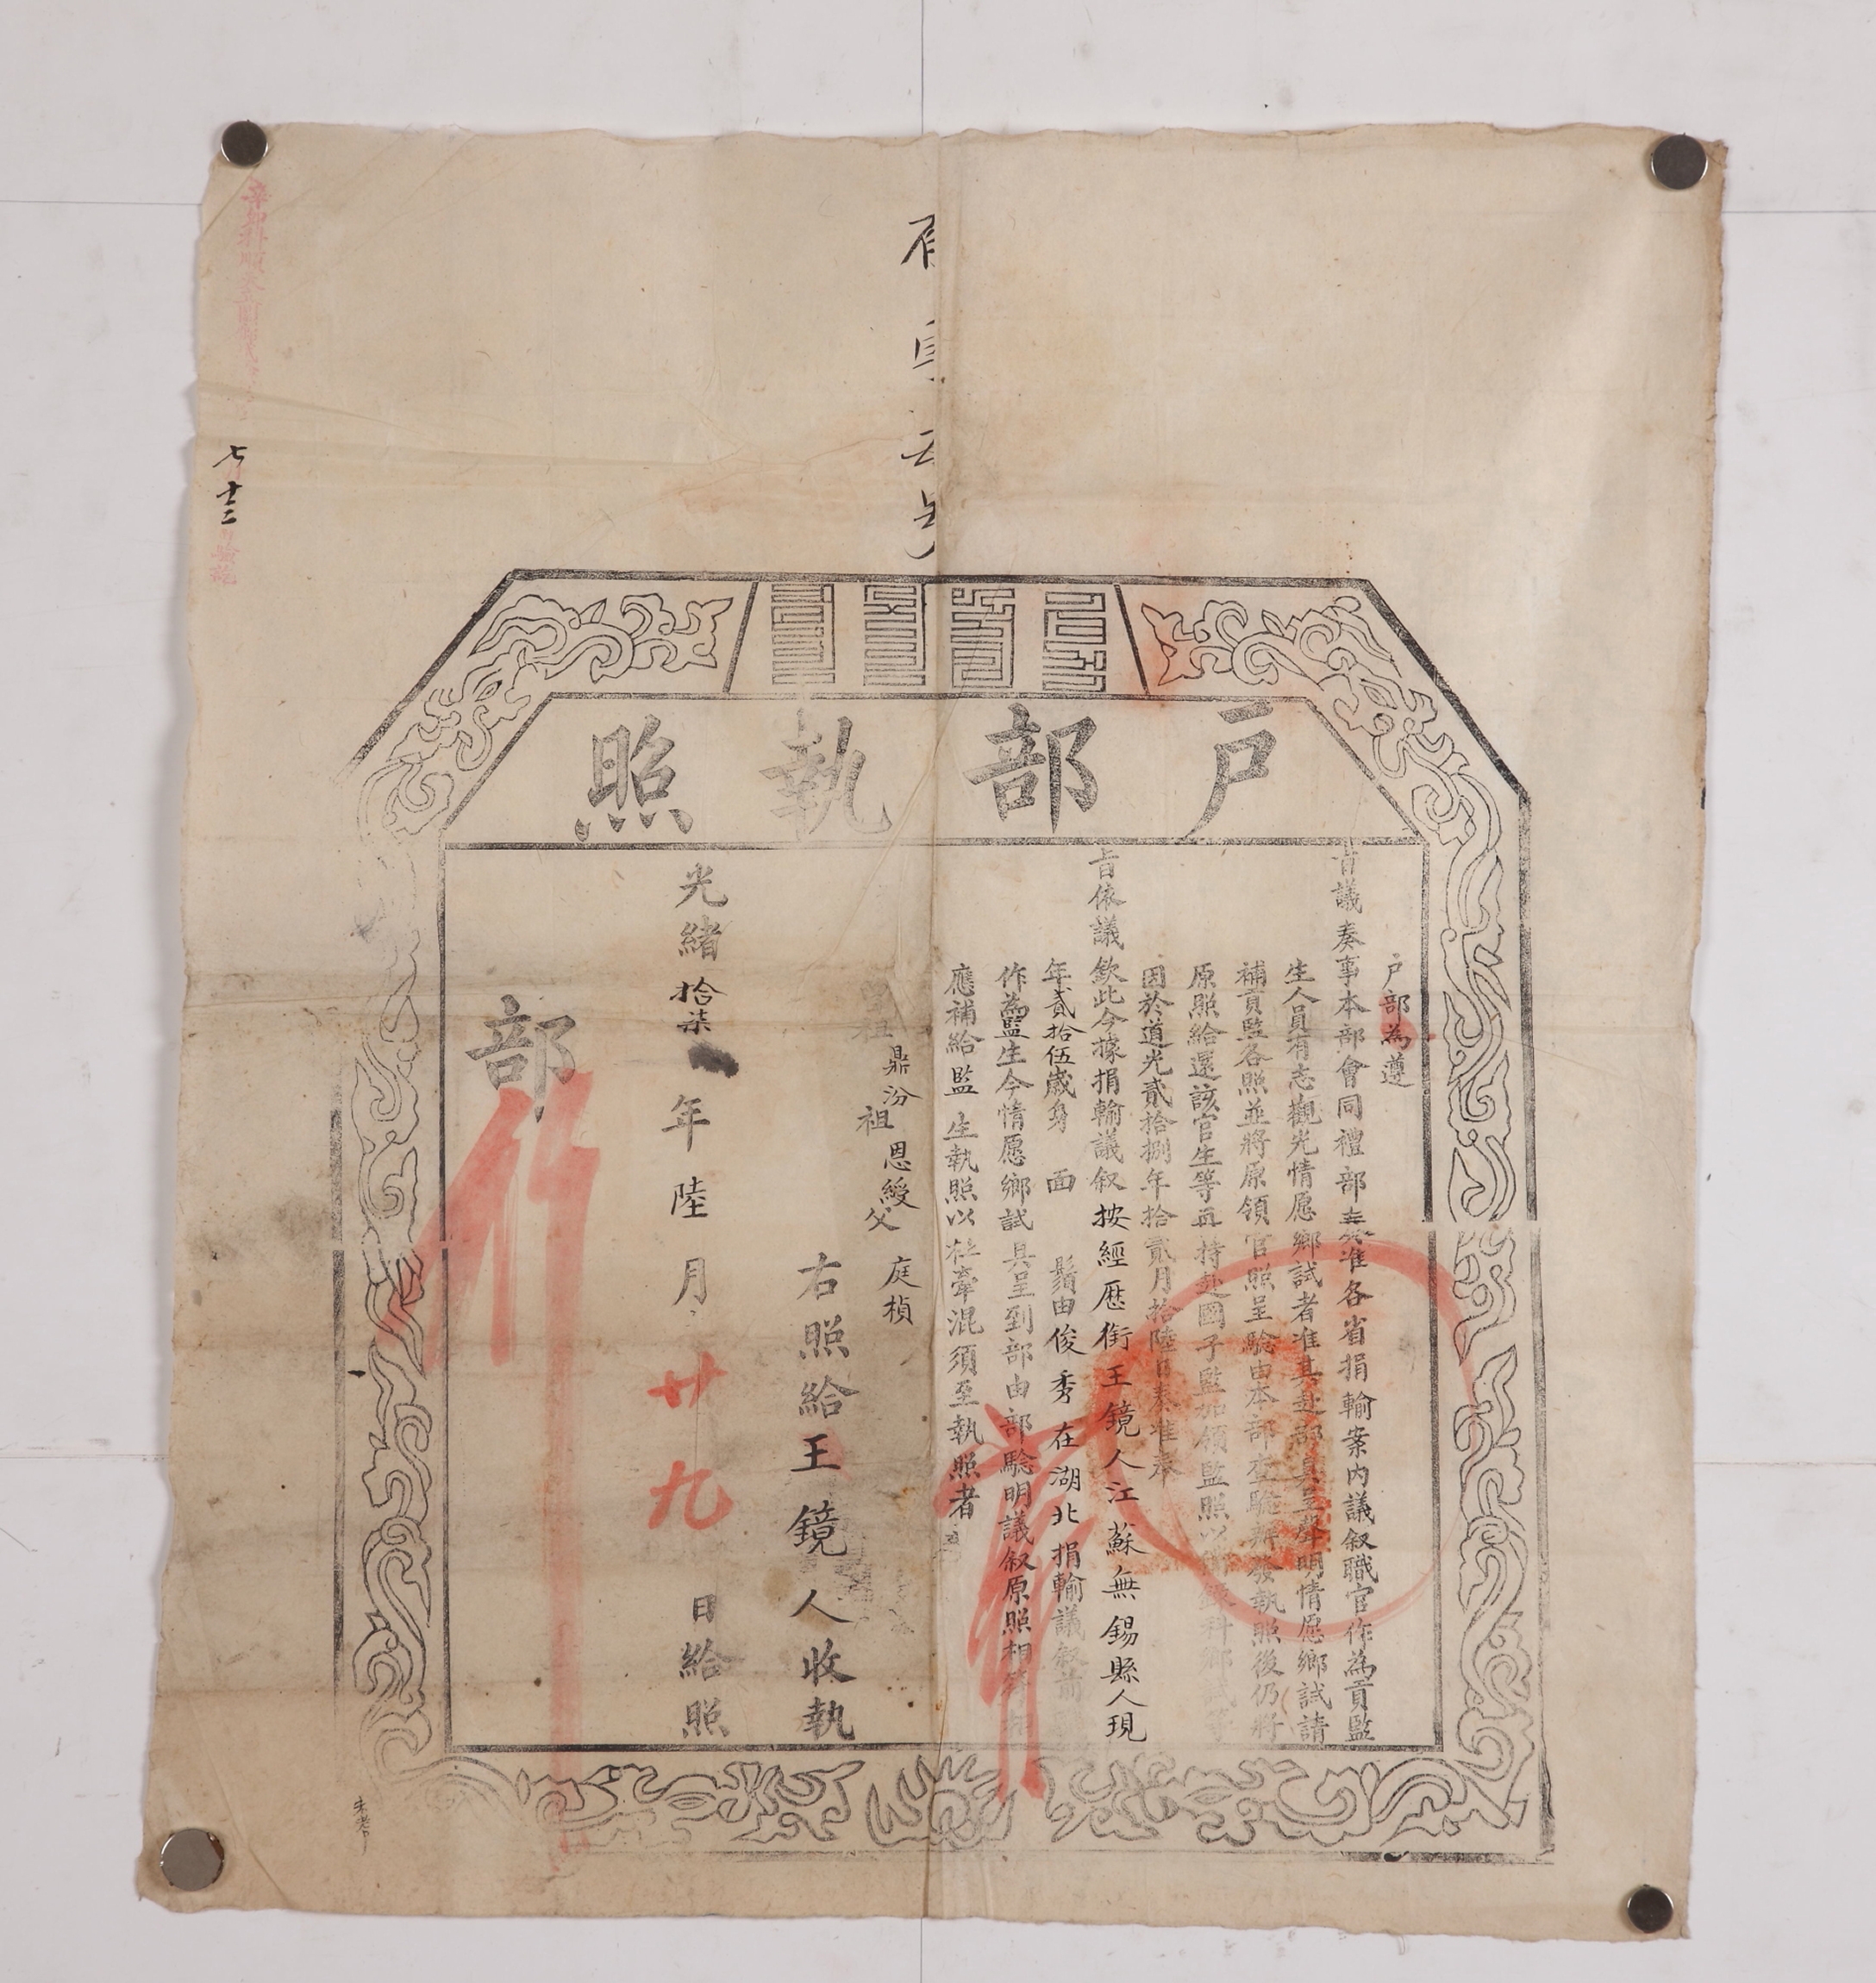 戶部執照
戶部為遵
旨議奏事本部會同禮部奏准各省捐輸案內議叙職官作為貢監
生人員有志觀光情愿鄉試者准其赴部具呈聲明情愿鄉試請
補貢監各照並將原領官照呈驗由本部查驗辦發執照後仍將
原照給還該官生等再持赴國子監加領監照以備錄科鄉試等
因於道光貳拾捌年拾貳月拾陸日奏准奉
旨依議欽此今據捐輸議叙按經歷銜王鏡人江蘇無錫縣人現
年貳拾伍歲身 面 鬚由俊秀在湖北捐輸議叙前
作為監生今情愿鄉試具呈到部由部驗明議叙原照相符
應補給監生執照以杜牽混須至執照者
曾祖鼎汾祖恩綬父庭楨
右照給王鏡人收執
光緒拾柒年陸月廿九日給照
部行
七 十二
驗訖